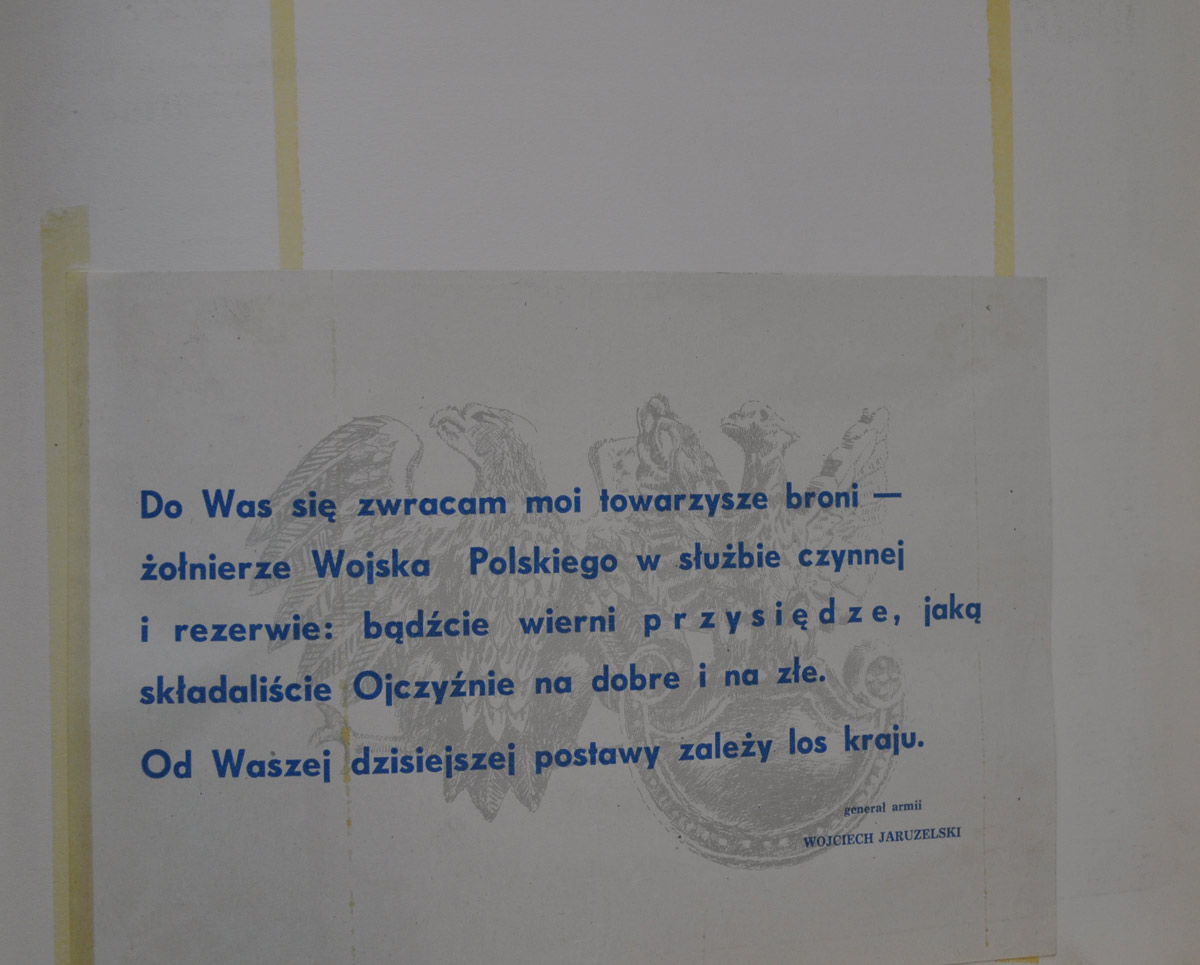 Do Was się zwracam moi towarzysze broni —
żołnierze Wojska Polskiego w służbie czynnej
i rezerwie: bądźcie wierni p r z y s i ę d z e, jaką
składaliście Ojczyźnie na dobre i na złe.
Od Waszej dzisiejszej postawy zależy los kraju.
generał armii
WOJCIECH JARUZELSKI